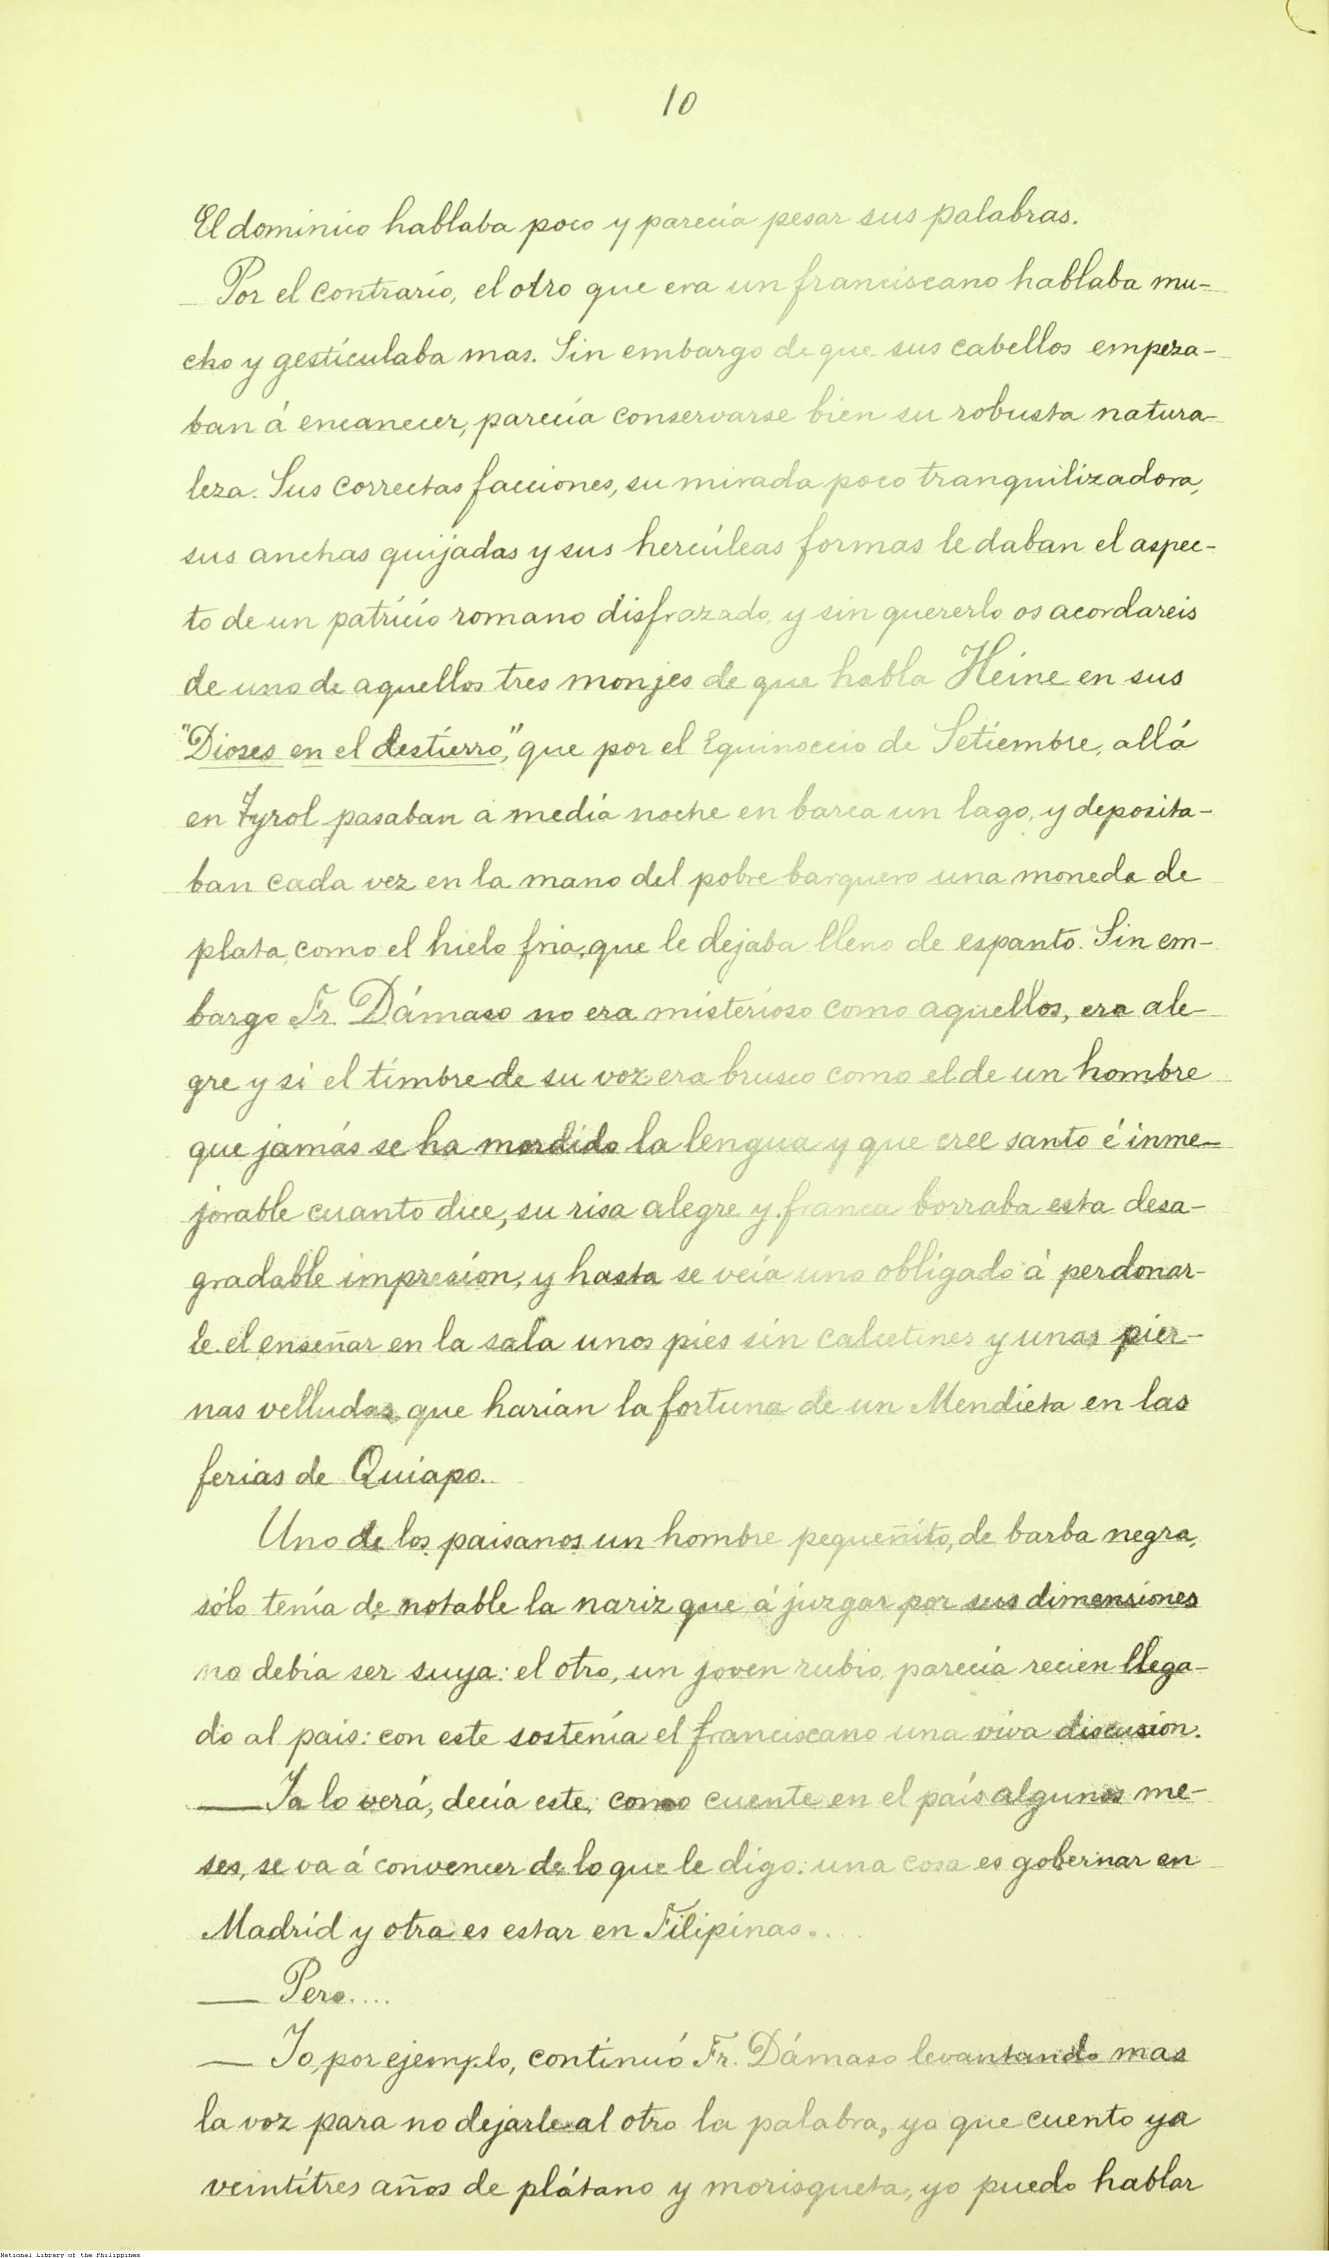 10
El dominico hablaba poco y parecía pesar sus palabras.
Por el contrario, el otro que era un franciscano hablaba mu-
cho y gesticulaba mas. Sin embargo de que sus cabellos empeza-
ban á encanecer, parecía conservarse bien su robusta natura-
leza. Sus correctas facciones, su mirada poco tranquilizadora,
sus anchas quijadas y sus hercúleas formas le daban el aspec-
to de un patricio romano disfrazado, y sin quererlo os acordareis
de uno de aquellos tres monjes de que habla Heine en sus
"Dioses en el destierro," que por el Equinoccio de Setiembre, allá
en Tyrol pasaban a media noche en barca un lago, y deposita-
ban cada vez en la mano del pobre barquero una moneda de
plata, como el hielo fria, que le dejaba lleno de espanto. Sin em-
bargo Fr. Dámaso no era misterioso como aquellos, era ale-
gre y si el timbre de su voz era brusco como el de un hombre
que jamás se ha mordido la lengua y que cree santo é inme-
jorable cuanto dice, su risa alegre y franca borraba esta desa-
gradable impresión, y hasta se veía uno obligado á perdonar-
le el enseñar en la sala unos pies sin calcetines y unas pier-
nas velludas que harían la fortuna de un Mendieta en las
ferias de Quiapo.
Uno de los paisanos un hombre pequeñito, de barba negra,
sólo tenía de notable la nariz que á juzgar por sus dimensiones
no debía ser suya: el otro, un joven rubio, parecía recien llega-
do al pais: con este sostenía el franciscano una viva discusión.
— Ya lo verá, decía este, como cuente en el país algunos me-
ses, se va á convencer de lo que le digo: una cosa es gobernar en
Madrid y otra es estar en Filipinas....
— Pero....
— Yo, por ejemplo, continuó Fr. Dámaso levantando mas
la voz para no dejarle al otro la palabra, yo que cuento ya
veintitres años de plátano y morisqueta, yo puedo hablar
National Library of the Philippines